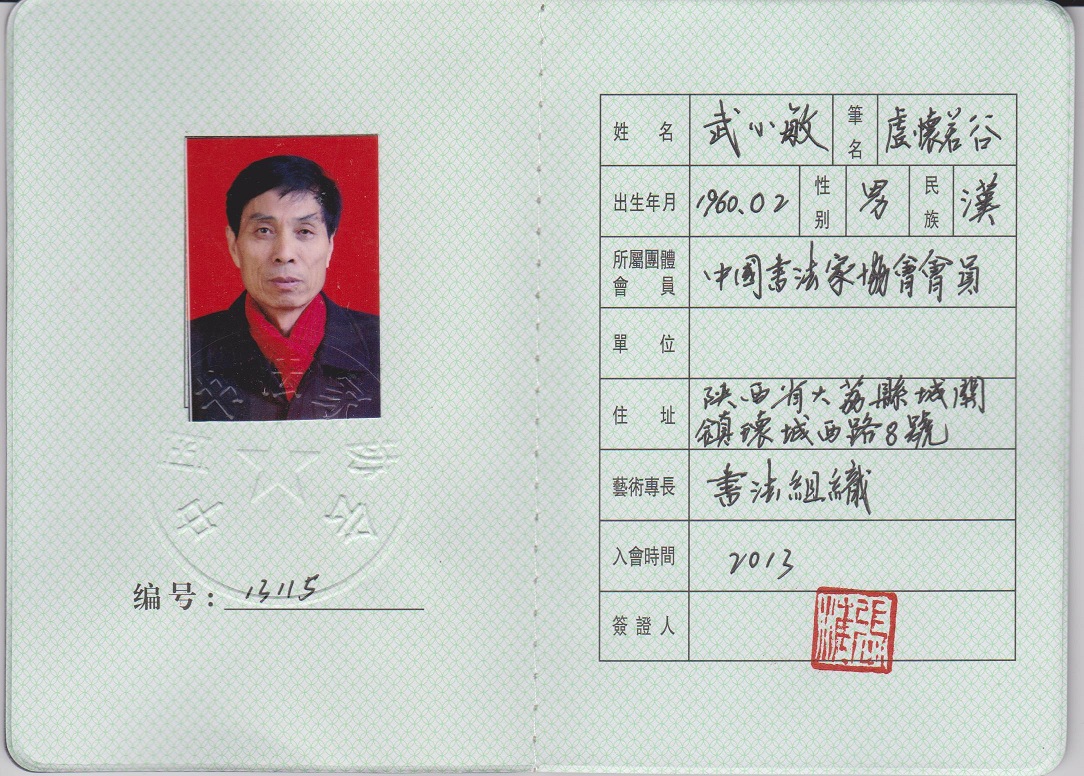 编号：13115
姓名 武小敏 筆名 虛懷若谷
出生年月 1960.02 性别 男 民族 漢
所屬團體
會員 中國書法家協會會員
單位
住址 陝西省大荔縣城關
鎮環城西路8號
藝術專長 書法組織
入會時間 2013
簽證人